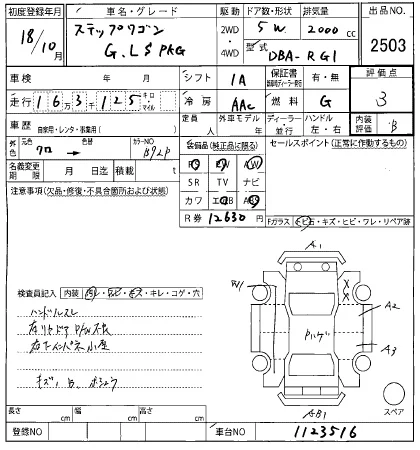 初度登録年月 車名・グレード 駆動 ドア数・形状 排気量 出品NO.
18/10月 ステップワゴン 2WD・4WD 5W 2000cc 2503
G.LS PKG 型式 DBA-RG1
車検 年 月 シフト IA 保証書 有・無 評価点
走行 16万3千125 キロ マイル 冷房 AAC 燃料 G 3
車歴 自家用・レンタ・事業用( ) 定員 人 外車モデル 年 ディーラー・並行 ハンドル 左・右 内装評価 B
外色 元色 クロ → 色替 カラーNO B92P 装備品(純正品に限る) セールスポイント(正常に作動するもの)
名義変更期限 月 日迄 積載 t
PS PW AW
注意事項(欠品・修復・不具合箇所および状態) SR TV ナビ
カワ エアB ABS
R券 12630
Fガラス トビ石・キズ・ヒビ・ワレ・リペア跡
A1
検査員記入 内装 ・キレ・コゲ・穴
W1
A2
ハンドルスレ
A3
AB1
スペア
長さ cm 幅 cm 高さ cm
登録NO 車台NO 1123516